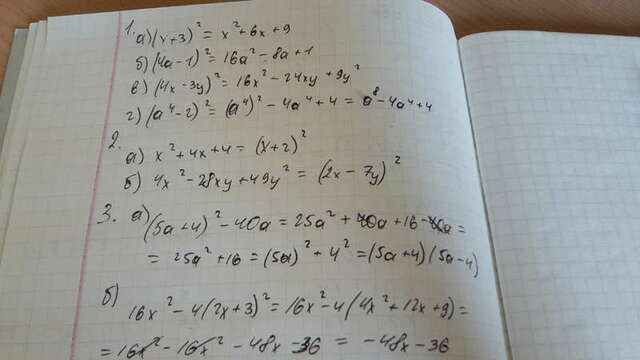 1. а) (x+3)² = x² + 6x + 9
б) (4a-1)² = 16a² - 8a + 1
в) (4x-3y)² = 16x² - 24xy + 9y²
г) (a⁴-2)² = (a⁴)² - 4a⁴ + 4 = a⁸ - 4a⁴ + 4
2. а) x² + 4x + 4 = (x+2)²
б) 4x² - 28xy + 49y² = (2x - 7y)²
3. а) (5a+4)² - 40a = 25a² + 40a + 16 - 40a =
= 25a² + 16 = (5a)² + 4² = (5a+4)(5a-4)
б) 16x² - 4(2x+3)² = 16x² - 4(4x² + 12x + 9) =
= 16x² - 16x² - 48x - 36 = -48x - 36